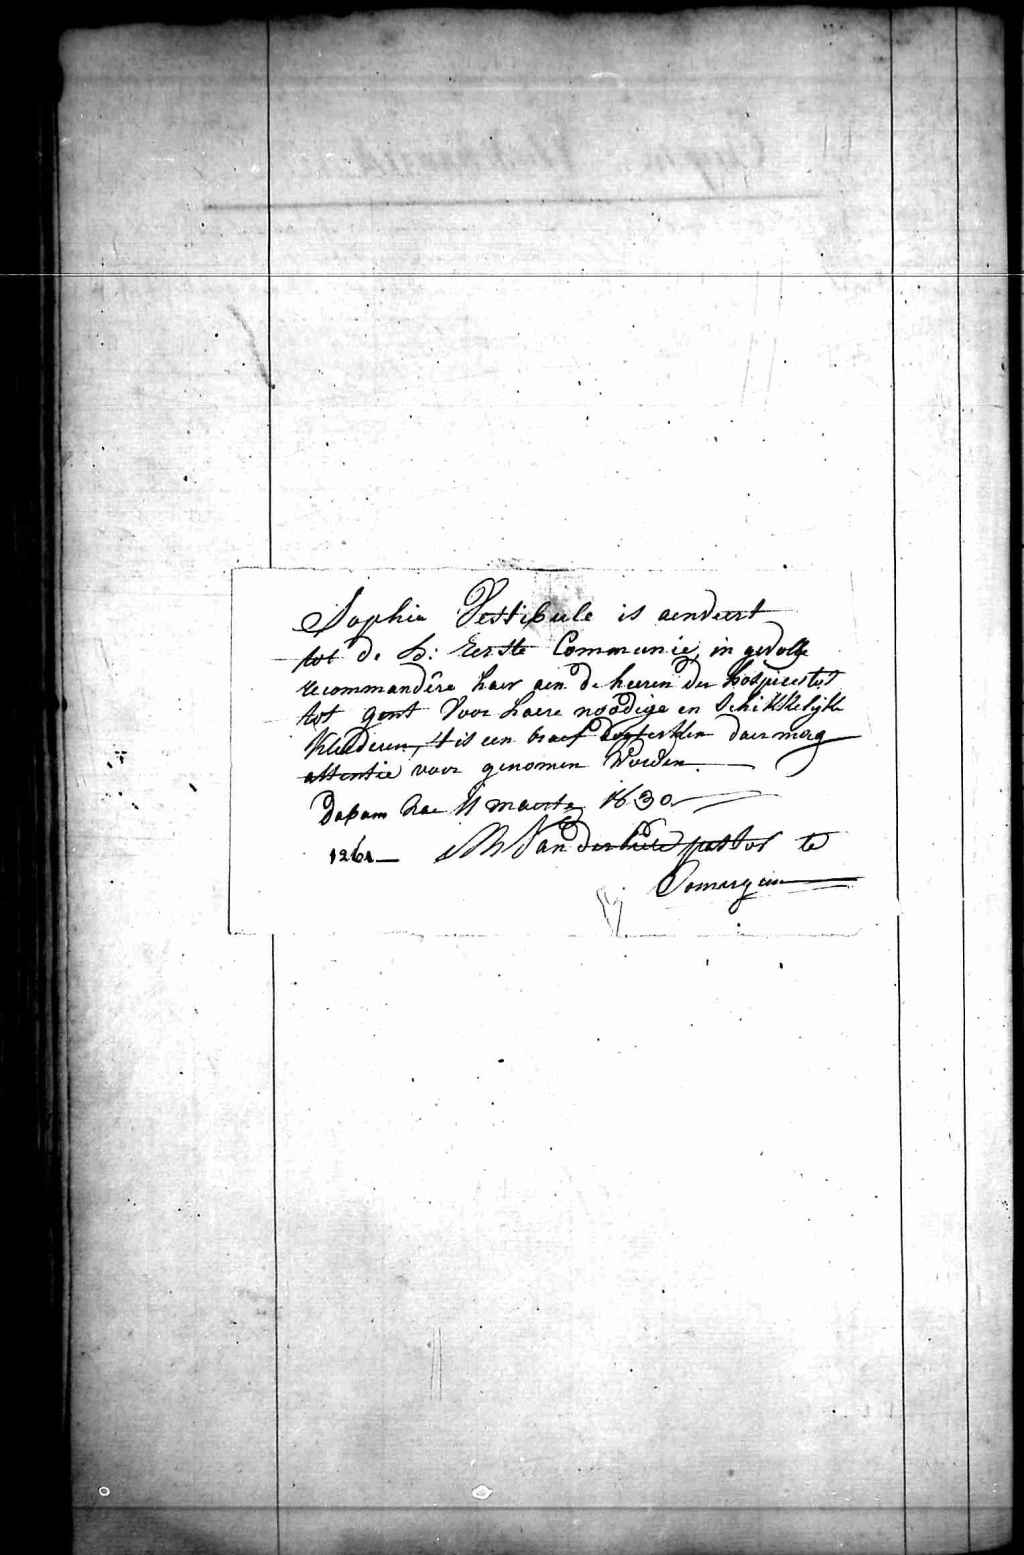 Sophia Vestibule is aenveert
tot de H: Eerste Communie, in gevolge
recommandére haer aen de heeren der hospicestot
tot gent voor haere noodige en schikkelyke
kleederen, t is een braef dogterken daer mag
attentie voor genomen worden
Datum hac 11 maerte 1830
1261 Van der pastor te
Somergem